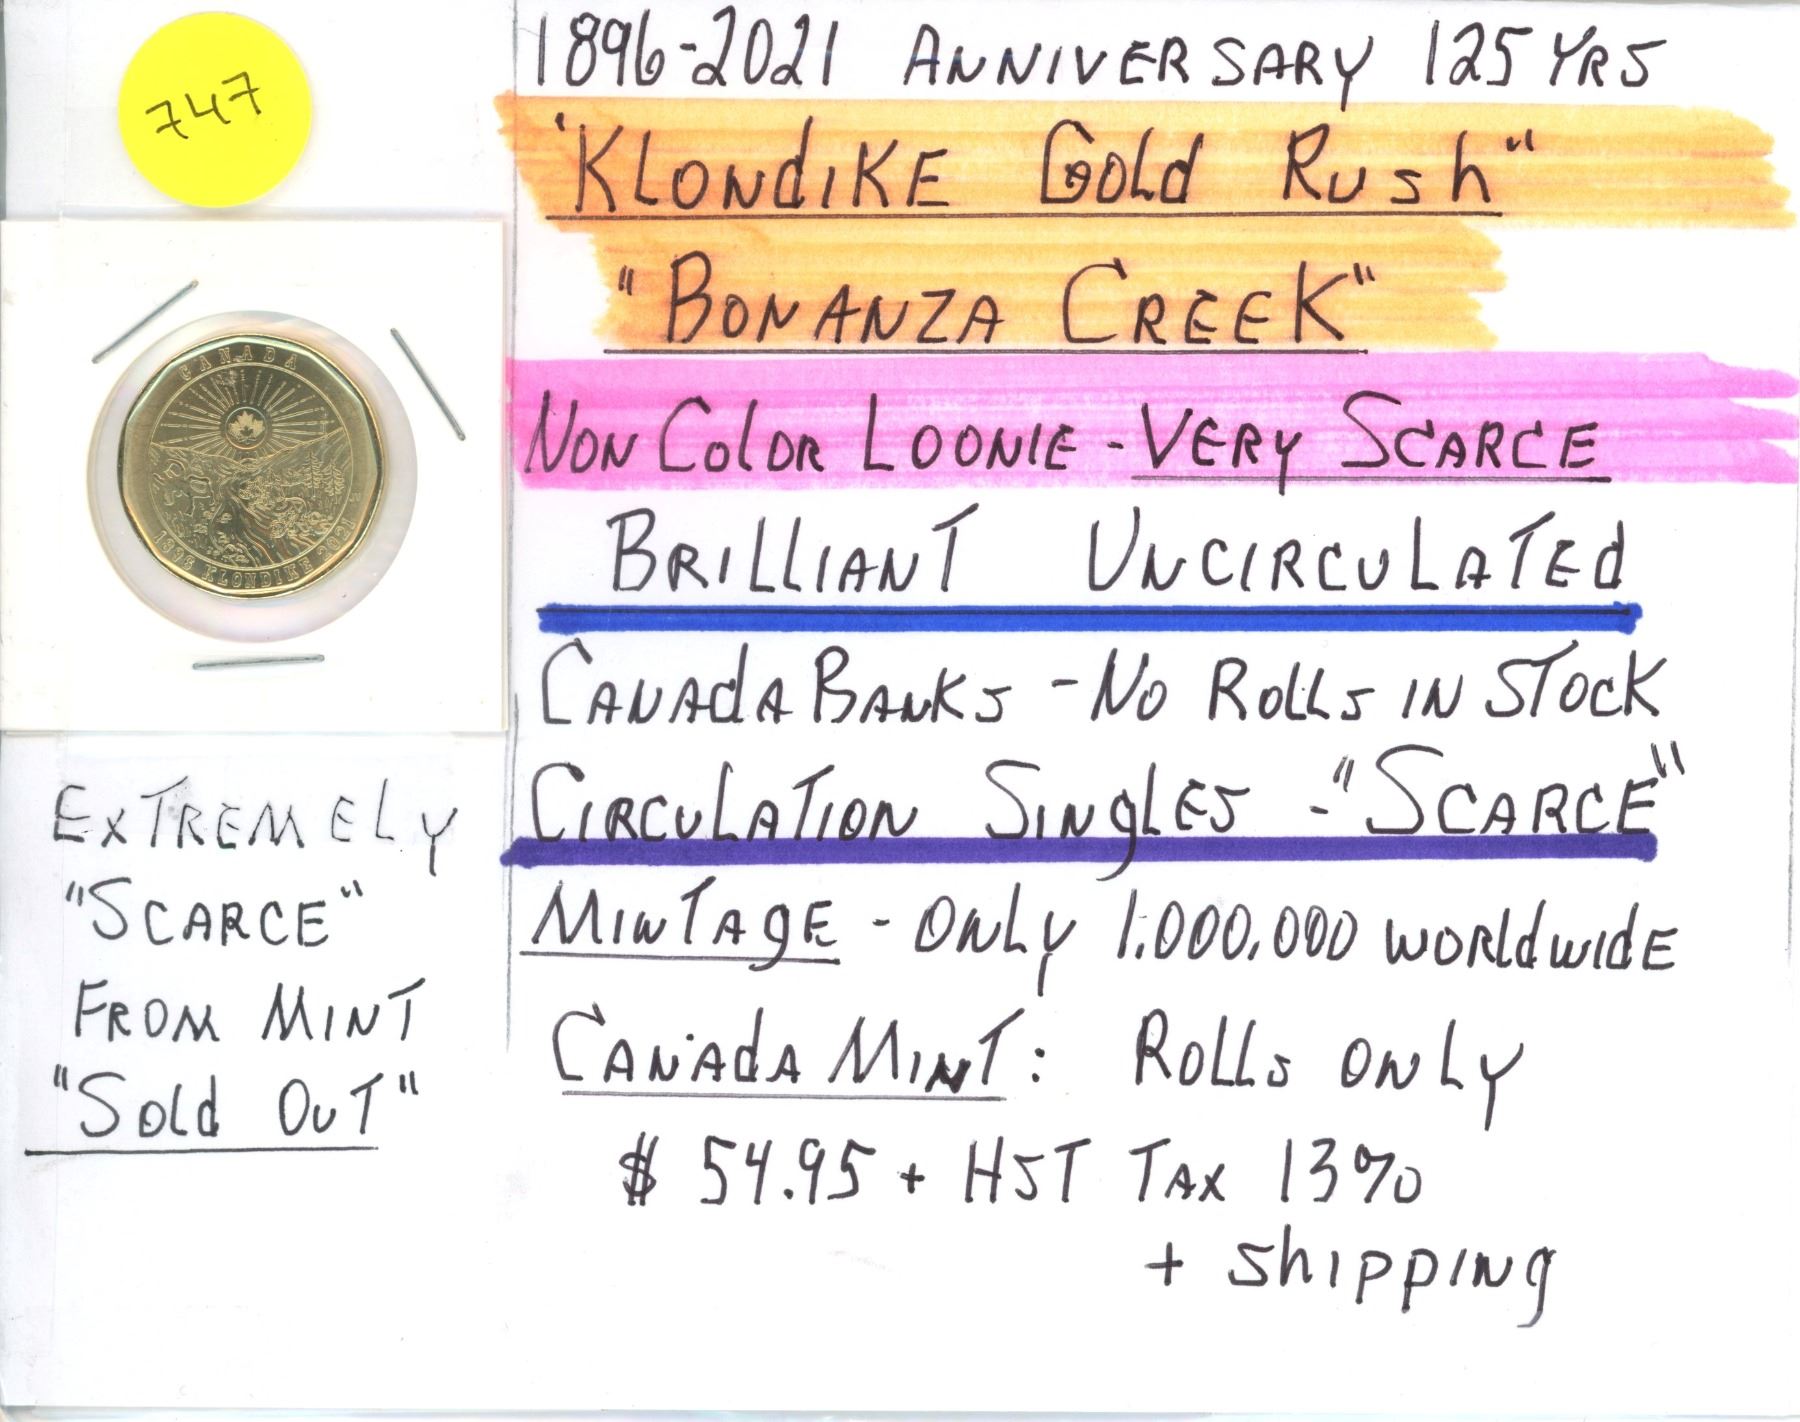 747
1896-2021 ANNIVERSARY 125 YRS
'KLONDIKE GOLD RUSH"
"BONANZA CREEK"
NON COLOR LOONIE - VERY SCARCE
BRILLIANT UNCIRCULATED
CANADA BANKS - NO ROLLS IN STOCK
CIRCULATION SINGLES - "SCARCE"
MINTAGE - ONLY 1,000,000 WORLDWIDE
CANADA MINT: ROLLS ONLY
$ 54.95 + HST TAX 13%
+ SHIPPING
CANADA
1896 KLONDIKE 2021
EXTREMELY
"SCARCE"
FROM MINT
"SOLD OUT"